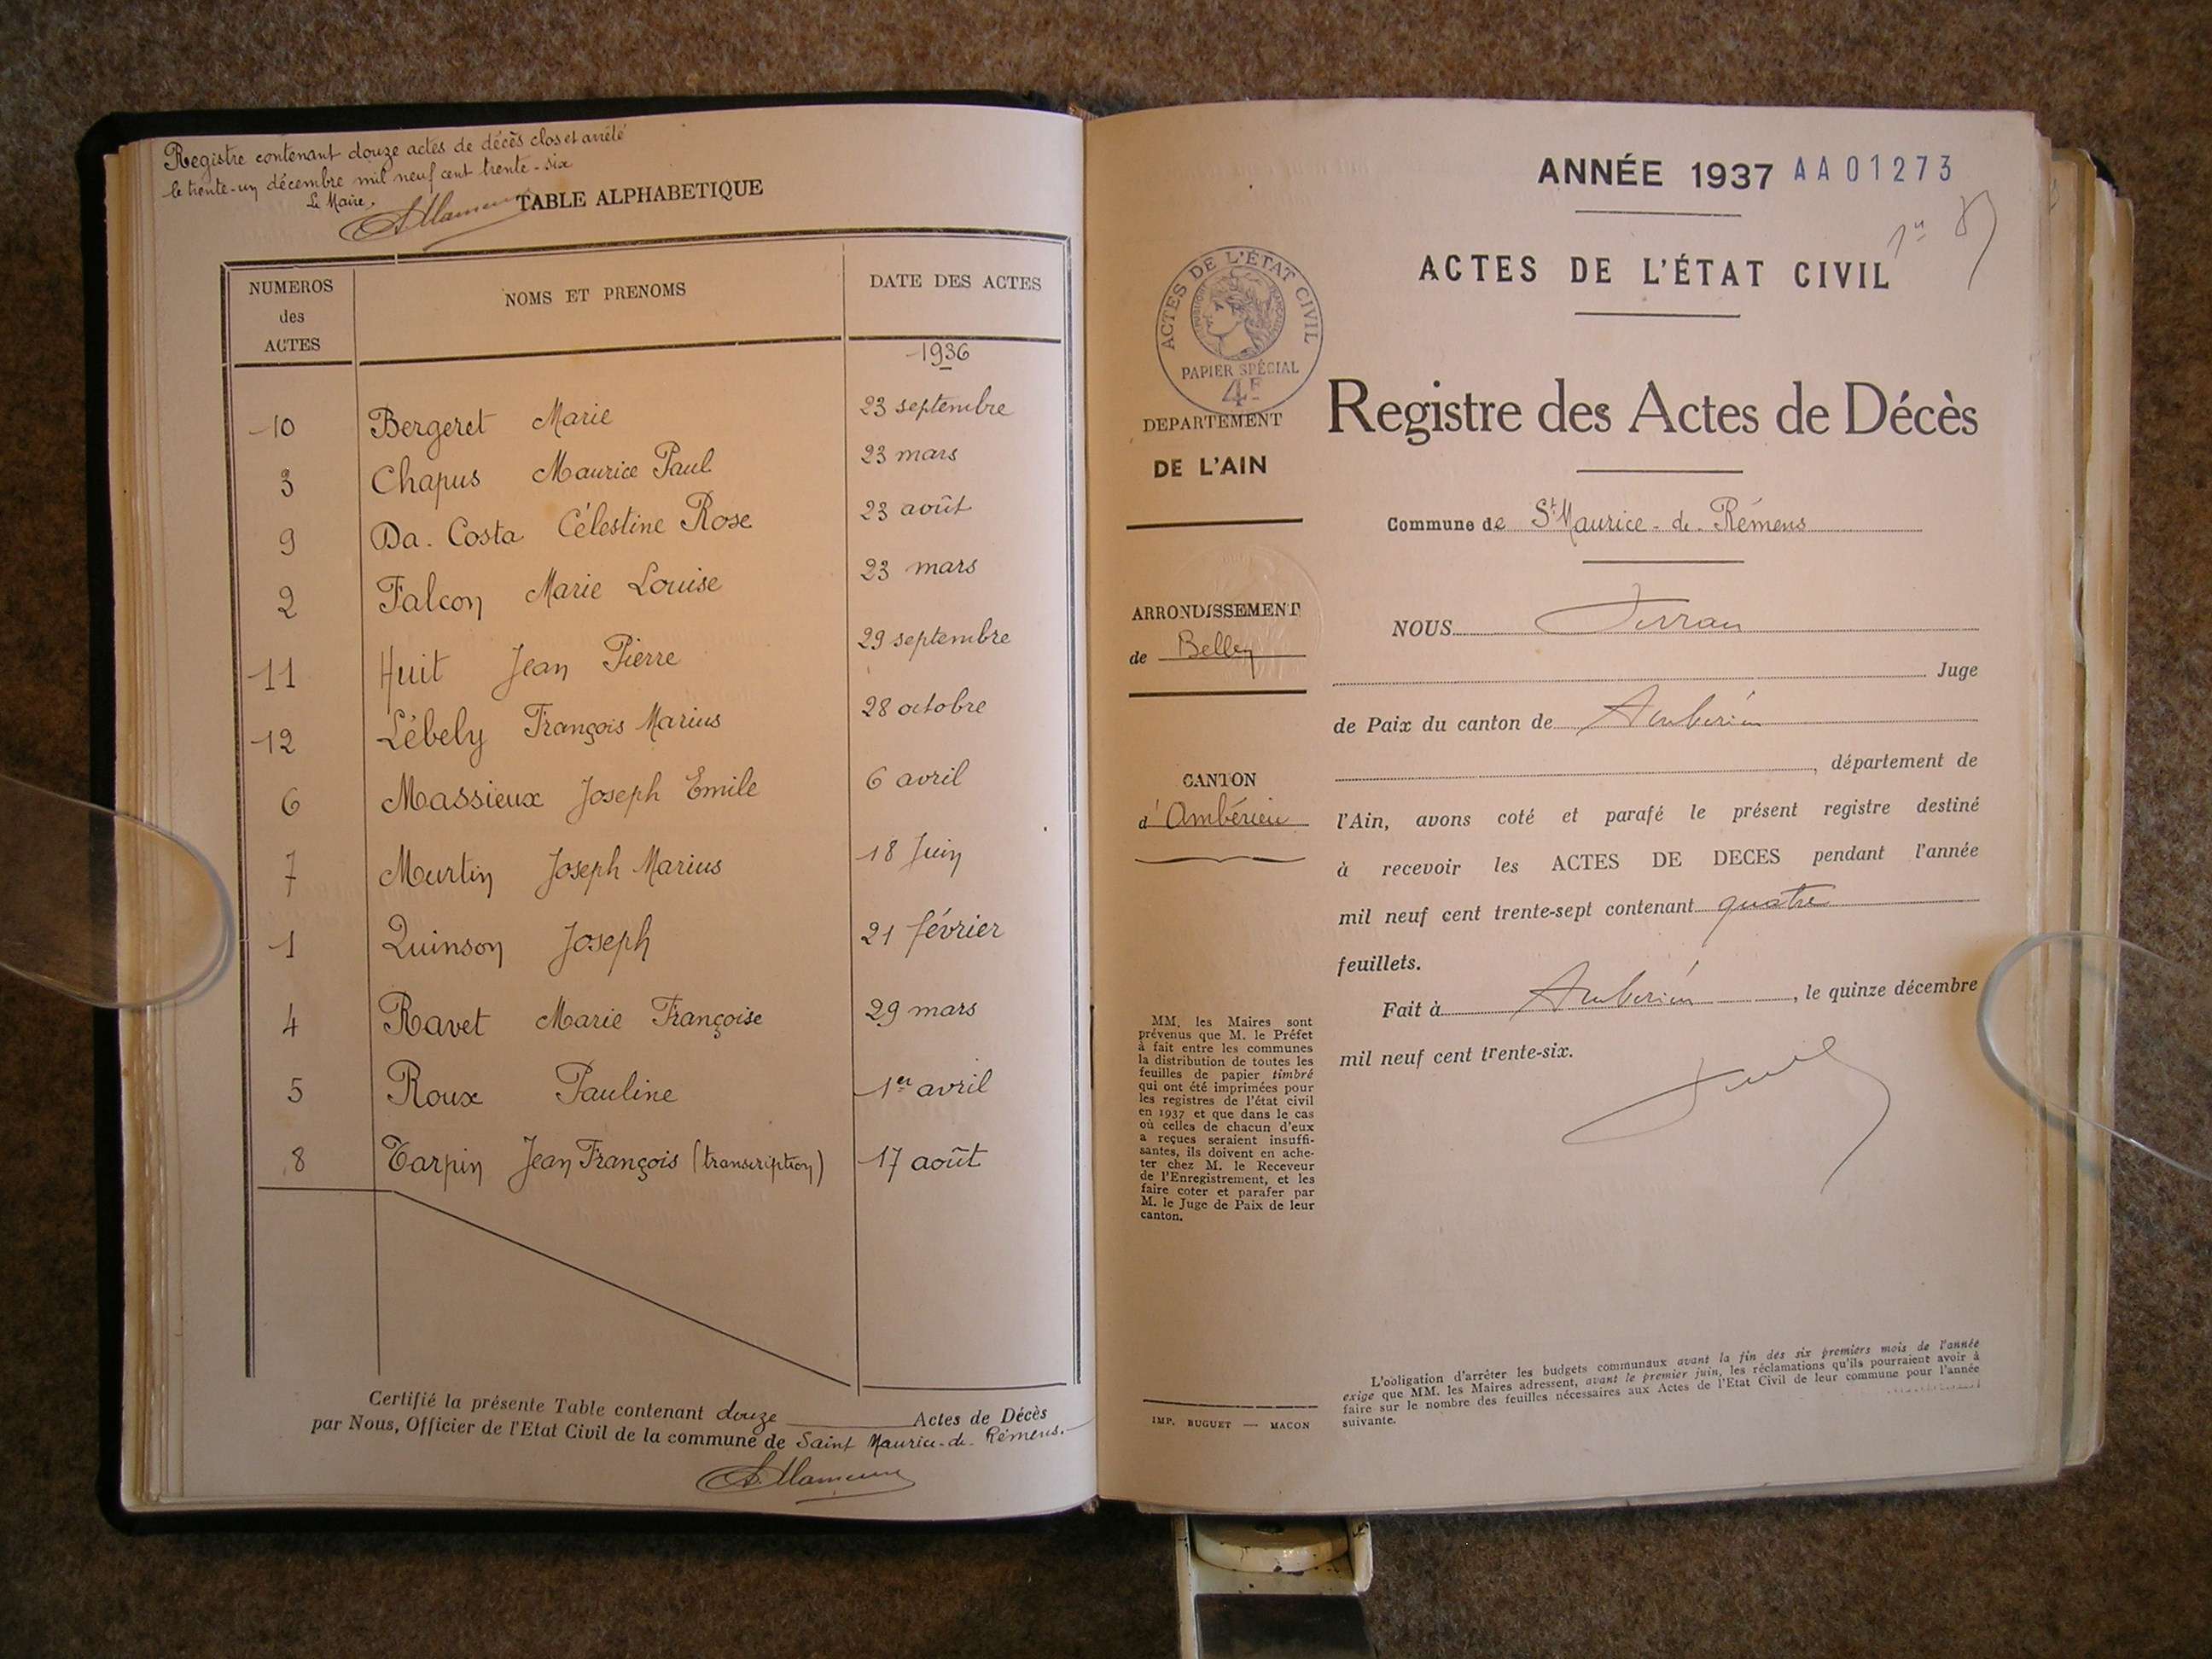 Registre contenant douze actes de décès clos et arrêté
le trente-un décembre mil neuf cent trente-six
Le Maire,
TABLE ALPHABETIQUE
NUMEROS des ACTES NOMS ET PRENOMS DATE DES ACTES
1936
10 Bergeret Marie 23 septembre
3 Chapus Maurice Paul 23 mars
9 Da. Costa Célestine Rose 23 août
2 Falcon Marie Louise 23 mars
11 Huit Jean Pierre 29 septembre
12 Lébely François Marius 28 octobre
6 Massieux Joseph Emile 6 avril
7 Murtin Joseph Marius 18 Juin
1 Quinson Joseph 21 février
4 Ravet Marie Françoise 29 mars
5 Roux Pauline 1er avril
8 Tarpin Jean François (transcription) 17 août
Certifié la présente Table contenant douze Actes de Décès
par Nous, Officier de l'Etat Civil de la commune de Saint Maurice-de-Rémens.
ANNÉE 1937 AA01273
ACTES DE L'ÉTAT CIVIL
ACTES DE L'ÉTAT CIVIL
PAPIER SPÉCIAL
4F
DEPARTEMENT
DE L'AIN
ARRONDISSEMENT
de Belley
CANTON
d'Ambérieu
MM. les Maires sont
prévenus que M. le Préfet
à fait entre les communes
la distribution de toutes les
feuilles de papier timbré
qui ont été imprimées pour
les registres de l'état civil
en 1937 et que dans le cas
où celles de chacun d'eux
a reçues seraient insuffi-
santes, ils doivent en ache-
ter chez M. le Receveur
de l'Enregistrement, et les
faire coter et parafer par
M. le Juge de Paix de leur
canton.
IMP. BUGUET — MACON
Registre des Actes de Décès
Commune de St Maurice-de-Rémens
NOUS
Juge
de Paix du canton de Ambérieu
, département de
l'Ain, avons coté et parafé le présent registre destiné
à recevoir les ACTES DE DECES pendant l'année
mil neuf cent trente-sept contenant quatre
feuillets.
Fait à Ambérieu, le quinze décembre
mil neuf cent trente-six.
L'obligation d'arrêter les budgets communaux avant la fin des six premiers mois de l'année
exige que MM. les Maires adressent, avant le premier juin, les réclamations qu'ils pourraient avoir à
faire sur le nombre des feuilles nécessaires aux Actes de l'Etat Civil de leur commune pour l'année
suivante.